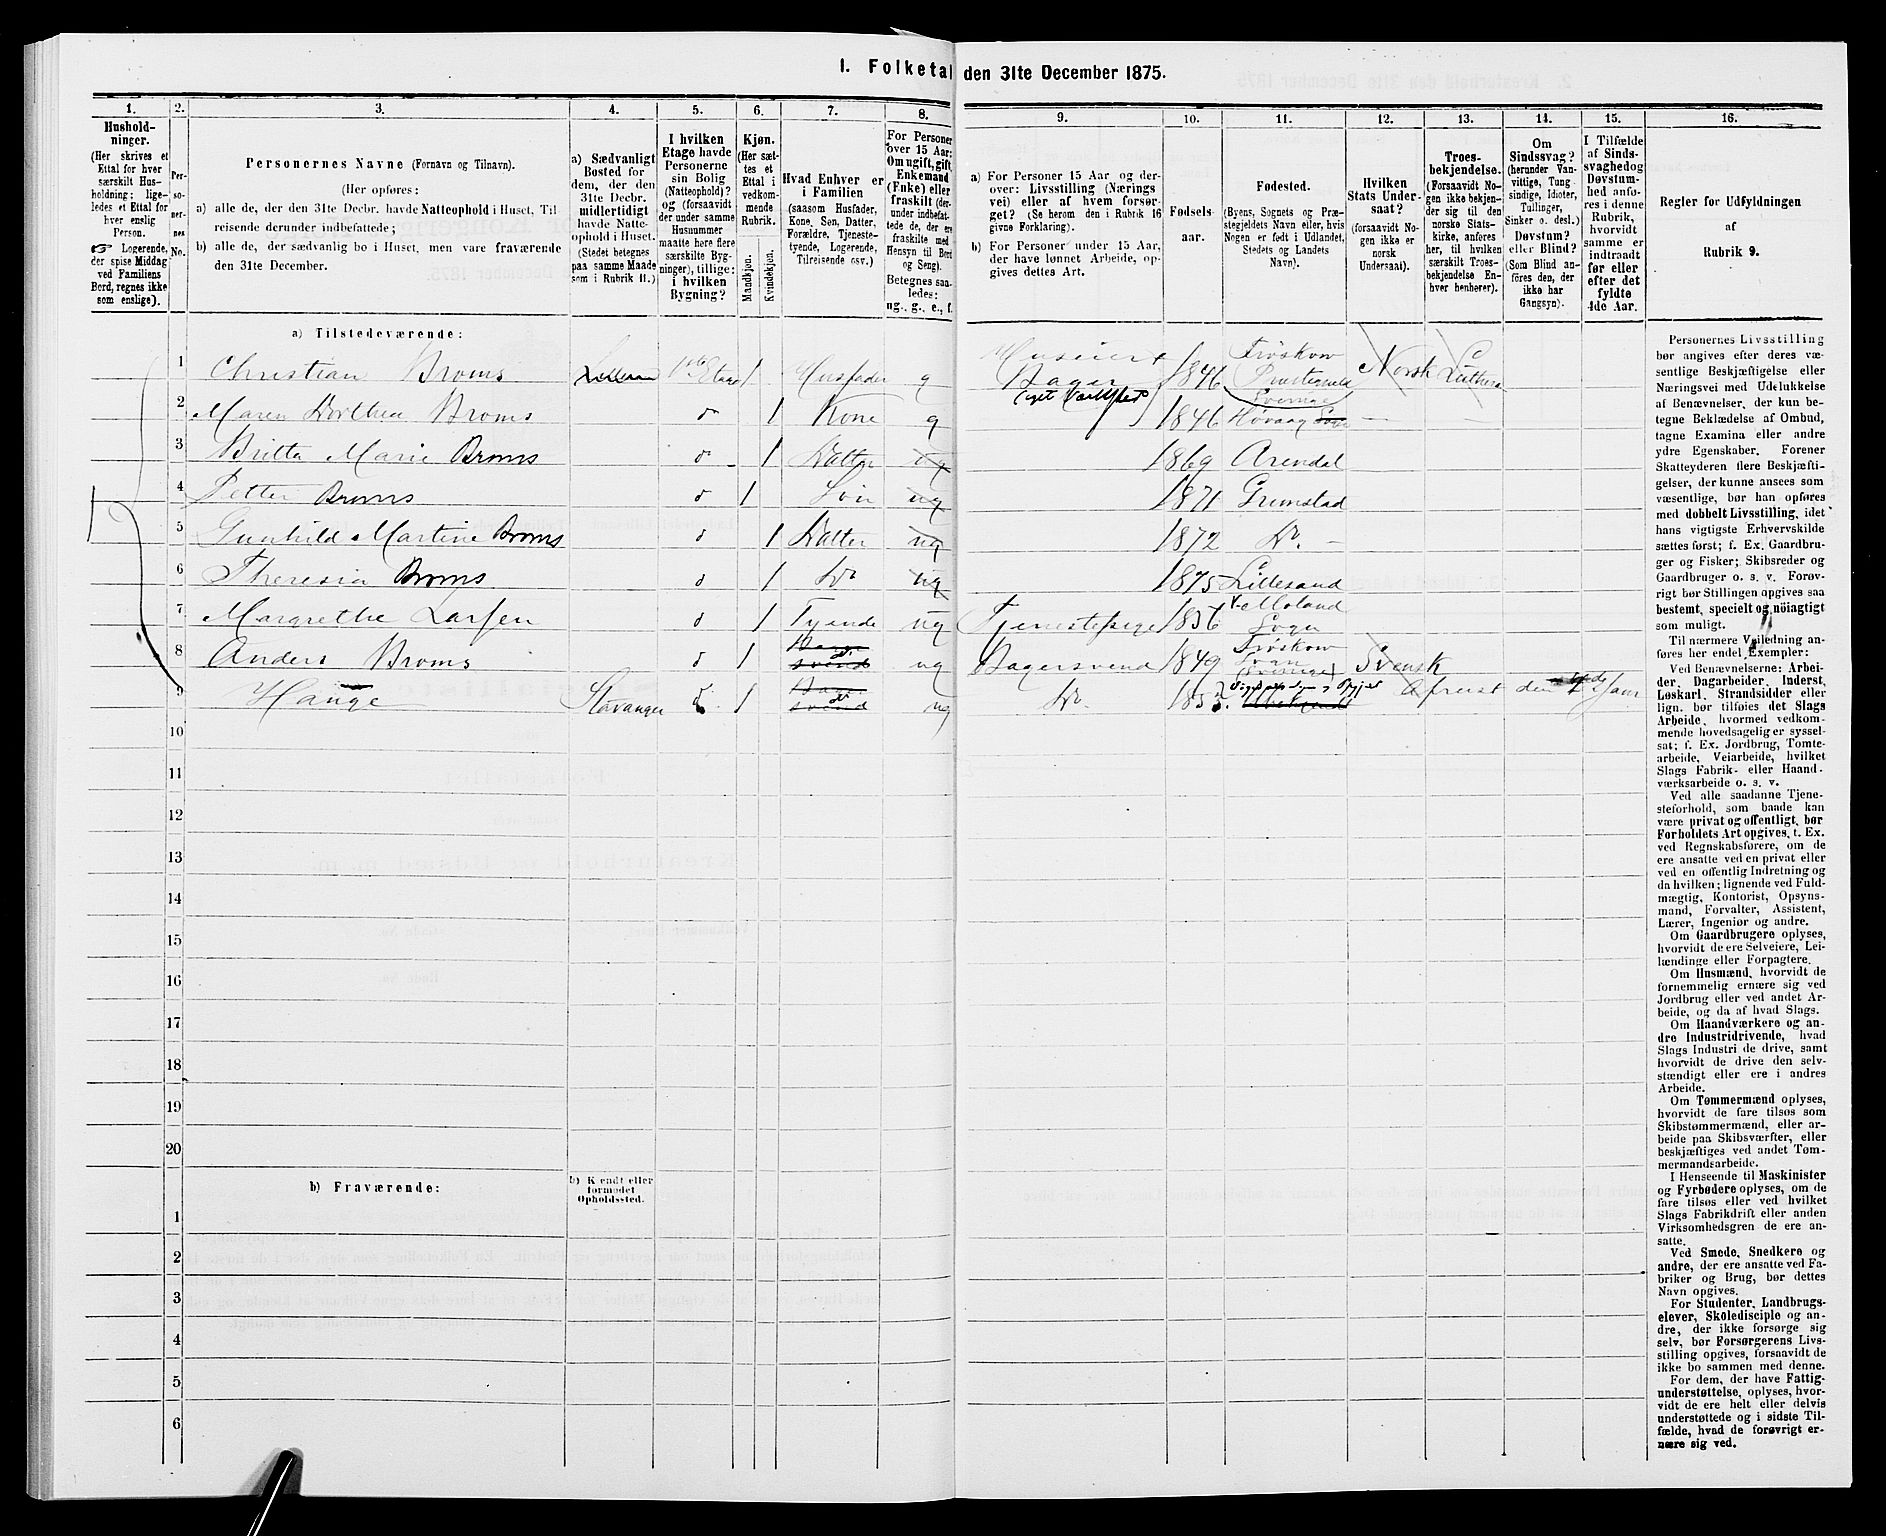 I. Folketal den 31te December 1875.
1.
Hushold-
ninger.
(Her skrives et
Ettal for hver
særskilt Hus-
holdning; lige-
ledes et Ettal for
hver enslig
Person.
☞ Logerende,
der spise Middag
ved Familiens
Bord, regnes ikke
som enslige).
2.
Per-
so-
ner-
nes
No.
3.
Personernes Navne (Fornavn og Tilnavn).
(Her opføres:
a) alle de, der den 31te Decbr. havde Natteophold i Huset, Til-
reisende derunder indbefattede;
b) alle de, der sædvanlig bo i Huset, men vare fraværende
den 31te December.
4.
a) Sædvanligt
Bosted for
dem, der den
31te Decbr.
midlertidigt
havde Natte-
ophold i Huset.
(Stedet betegnes
paa samme Maade
som i Rubrik 11.)
5.
I hvilken
Etage havde
Personerne
sin Bolig
(Natteophold)?
og (forsaavidt
der under samme
Husnummer
maatte høre flere
særskilte Byg-
ninger), tillige:
i hvilken
Bygning?
6.
Kjøn.
(Her sæt-
tes et
Ettal i
vedkom-
mende
Rubrik.
Mandkjøn.
Kvindekjøn.
7.
Hvad Enhver er
i Familien
(saasom Husfader,
Kone, Søn, Datter,
Forældre, Tjeneste-
tyende, Logerende,
Tilreisende osv.)
8.
For Personer
over 15 Aar:
Om ugift, gift,
Enkemand
(Enke) eller
fraskilt (der-
under indbefat-
tede de, der ere
fraskilte med
Hensyn til Bord
og Seng).
Betegnes saa-
ledes:
ug., g., e., f.
9.
a) For Personer 15 Aar og der-
over: Livsstilling (Nærings
vei) eller af hvem forsør-
get? (Se herom den i Rubrik 16
givne Forklaring).
b) For Personer under 15 Aar,
der have lønnet Arbeide, op-
gives dettes Art.
10.
Fødsels-
aar.
11.
Fødested.
(Byens, Sognets og Præ-
stegjeldets Navn eller, hvis
Nogen er født i Udlandet,
Stedets og Landets
Navn).
12.
Hvilken
Stats Under-
saat?
(forsaavidt No-
gen ikke er
norsk
Undersaat).
13.
Troes-
bekjendelse.
(Forsaavidt No-
gen ikke bekjen-
der sig til den
norske Stats-
kirke, anføres
her, til hvilken
særskilt Troes-
bekjendelse En-
hver henhører).
14.
Om
Sindssvag?
(herunder Van-
vittige, Tung-
sindige, Idioter,
Tullinger,
Sinker o. desl.)
Døvstum?
eller Blind?
(Som Blind an-
føres den, der
ikke har
Gangsyn).
15.
I Tilfælde
af Sinds-
svaghed og
Døvstum-
hed anfø-
res i denne
Rubrik,
hvorvidt
samme er
indtraadt
før eller
efter det
fyldte
4de Aar.
16.
Regler for Udfyldningen
af
Rubrik 9.
a) Tilstedeværende:
1 Christian Broms 1ste Etage 1 Husfader g Huseier Bager 1846 Præstegield Sverige Norsk Luthersk
2 Maren Dorthea Broms d 1 Kone g 1846 Høvaag
3 Britta Marie Broms d 1 Datter ug 1869 Arendal
4 Petter Broms d 1 Søn ug 1871 Grimstad
5 Gunhild Martine Broms d 1 Datter ug 1872 Do.
6 Theresia Broms d 1 Do ug 1875 Lillesand
7 Margrethe Larsen d 1 Tyende ug Tjenestepige 1856 V. Moland Sogn
8 Anders Broms d 1 ug Bagersvend 1849 (Sverige) Svensk
9 Hauge Stavanger d 1 ug Do. 1853 Afreist den
10
11
12
13
14
15
16
17
18
19
20
b) Fraværende:
b) Kjendt eller
formodet
Opholdssted.
1
2
3
4
5
6
Personernes Livsstilling
bør angives efter deres væ-
sentlige Beskjæftigelse eller
Næringsvei med Udelukkelse
af Benævnelser, der kun be-
tegne Beklædelse af Ombud,
tagne Examina eller andre
ydre Egenskaber. Forener
Skatteyderen flere Beskjæfti-
gelser, der kunne ansees som
væsentlige, bør han opføres
med dobbelt Livsstilling, idet
hans vigtigste Erhvervskilde
sættes først; f. Ex. Gaardbru-
ger og Fisker; Skibsreder og
Gaardbruger o. s. v. Forøv-
rigt bør Stillingen opgives saa
bestemt, specielt og nøiagtigt
som muligt.
Til nærmere Veiledning an-
føres her endel Exempler:
Ved Benævnelserne: Arbei-
der, Dagarbeider, Inderst,
Løskarl, Strandsidder eller
lign. bør tilføies det Slags
Arbeide, hvormed vedkom-
mende hovedsagelig er syssel-
sat; f. Ex. Jordbrug, Tomte-
arbeide, Veiarbeide, hvilket
Slags Fabrik- eller Haand-
værksarbeide o. s. v.
Ved alle saadanne Tjene-
steforhold, som baade kan
være privat og offentligt, bør
Forholdets Art opgives, t. Ex.
ved Regnskabsførere, om de
ere ansatte ved en privat eller
ved en offentlig Indretning og
da hvilken; lignende ved Fuld-
mægtig, Kontorist, Opsyns-
mand, Forvalter, Assistent,
Lærer, Ingeniør og andre.
Om Gaardbrugere oplyses,
hvorvidt de ere Selveiere, Lei-
lændinge eller Forpagtere.
Om Husmænd, hvorvidt de
fornemmelig ernære sig ved
Jordbrug eller ved andet Ar-
beide, og da af hvad Slags.
Om Haandværkere og an-
dre Industridrivende, hvad
Slags Industri de drive, samt
hvorvidt de drive den selv-
stændigt eller ere i andres
Arbeide.
Om Tømmermænd oplyses,
hvorvidt de fare tilsøs som
Skibstømmermænd, eller ar-
beide paa Skibsværfter, eller
beskjæftiges ved andet Tøm-
mermandsarbeide.
I Henseende til Maskinister
og Fyrbødere oplyses, om de
fare tilsøs eller ved hvilket
Slags Fabrikdrift eller anden
Virksomhedsgren de ere an-
satte.
Ved Smede, Snedkere og
andre, der ere ansatte ved Fa-
briker og Brug, bør dettes
Navn opgives.
For Studenter, Landbrugs-
elever, Skoledisciple og an-
dre, der ikke forsørge sig
selv, bør Forsørgerens Livs-
stilling opgives, forsaavidt de
ikke bo sammen med denne.
For dem, der have Fattig-
understøttelse, oplyses, hvor-
vidt de ere helt eller delvis
understøttede og i sidste Til-
fælde, hvad de forøvrigt er-
nære sig ved.